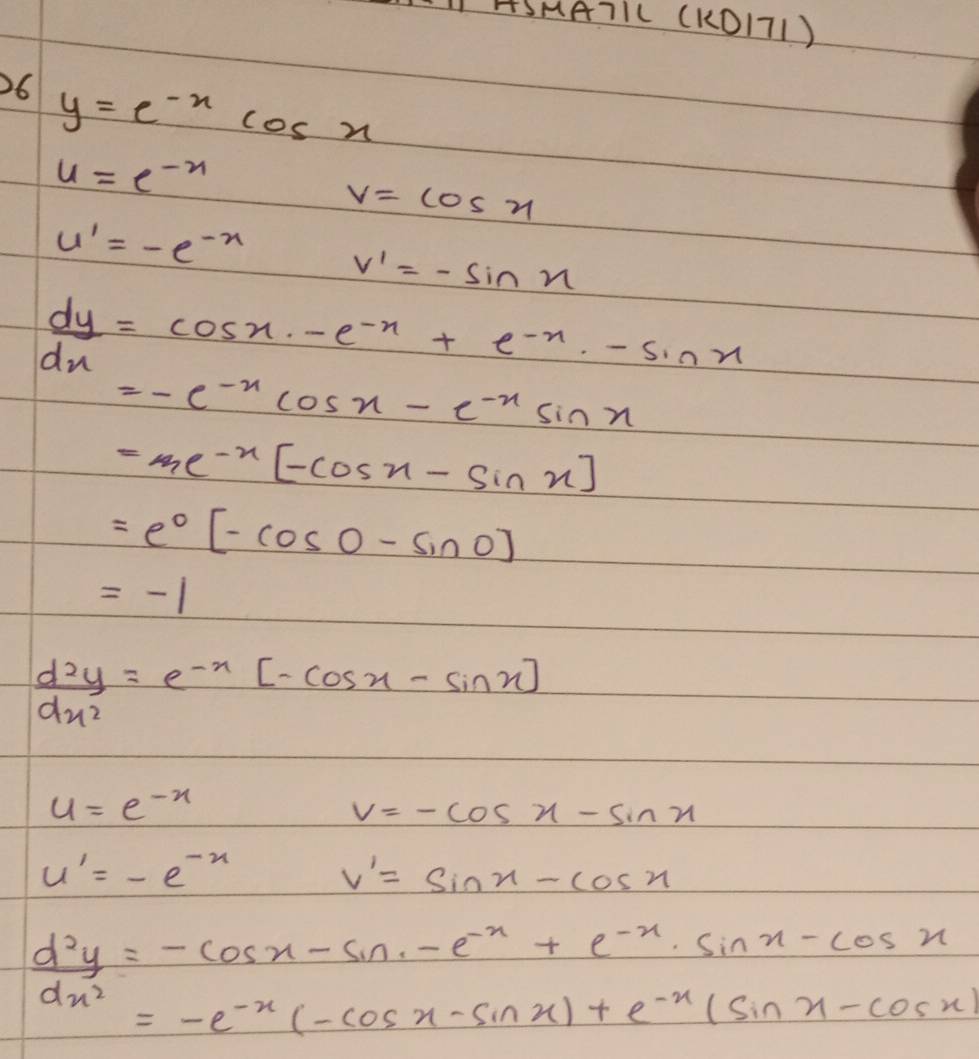 ASMATIL (KD171)
06 y = e^{-x} cos x
u = e^{-x} v = cos x
u' = -e^{-x} v' = - sin x
dy/dx = cos x . -e^{-x} + e^{-x} . - sin x
= -e^{-x} cos x - e^{-x} sin x
= e^{-x} [-cos x - sin x]
= e^0 [- cos 0 - sin 0]
= -1
d²y/dx² = e^{-x} [- cos x - sin x]
u = e^{-x} v = - cos x - sin x
u' = - e^{-x} v' = sin x - cos x
d²y/dx² = - cos x - sin . - e^{-x} + e^{-x} . sin x - cos x
= -e^{-x} (- cos x - sin x) + e^{-x} (sin x - cos x)